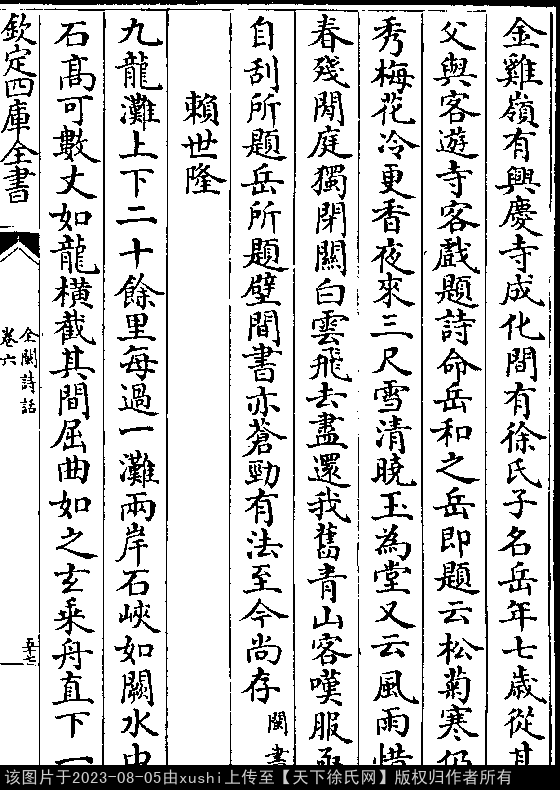 金雞嶺有興慶寺成化間有徐氏子名岳年七歲從其
父與客遊寺客戲題詩命岳和之岳即題云松菊寒仍
秀梅花冷更香夜來三尺雪清曉玉為堂又云風雨惜
春殘閒庭獨閉關白雲飛去盡還我舊青山客嘆服亟
自刮所題岳所題壁間書亦蒼勁有法至今尚存 閩書
賴世隆
九龍灘上下二十餘里每過一灘兩岸石峽如闕水中
石髙可數丈如龍橫截其間屈曲如之玄乗舟直下一
欽定四庫全書
全閩詩話
卷六
五十七
该图片于2023-08-05由xushi上传至【天下徐氏网】版权归作者所有